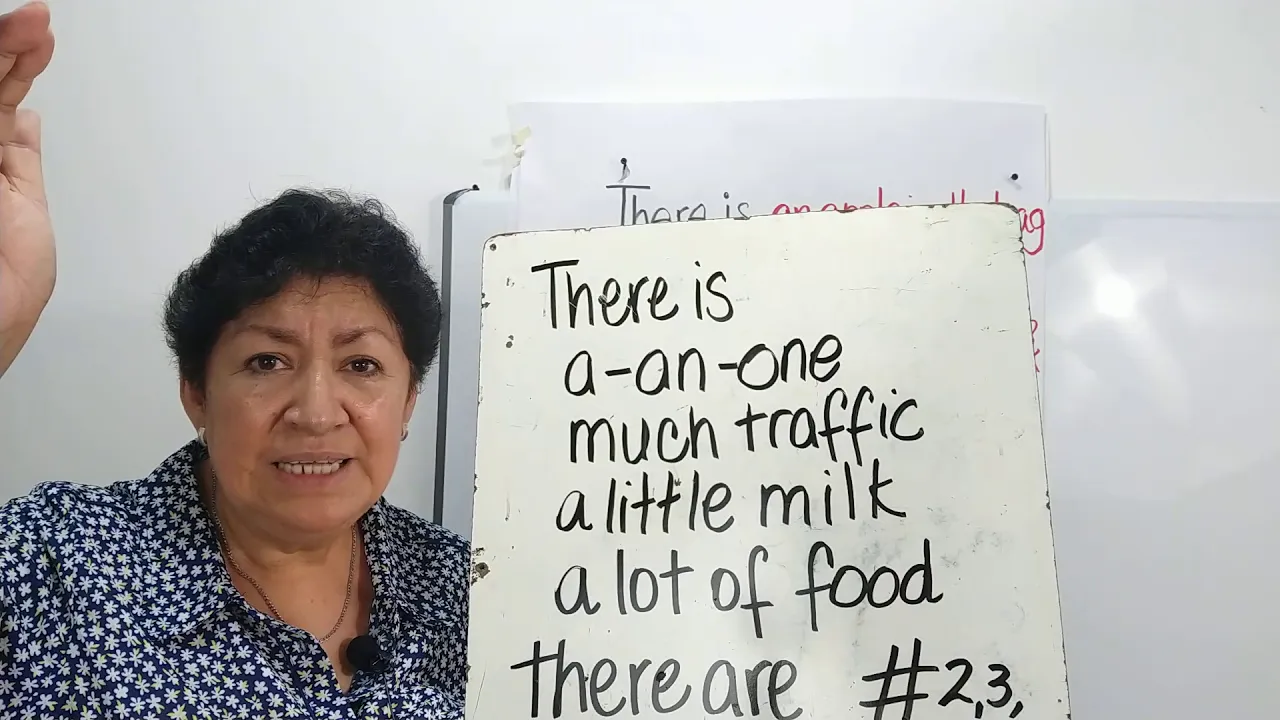 There is
There is
a-an-one
much traffic
a little milk
a lot of food
there are #2,3,